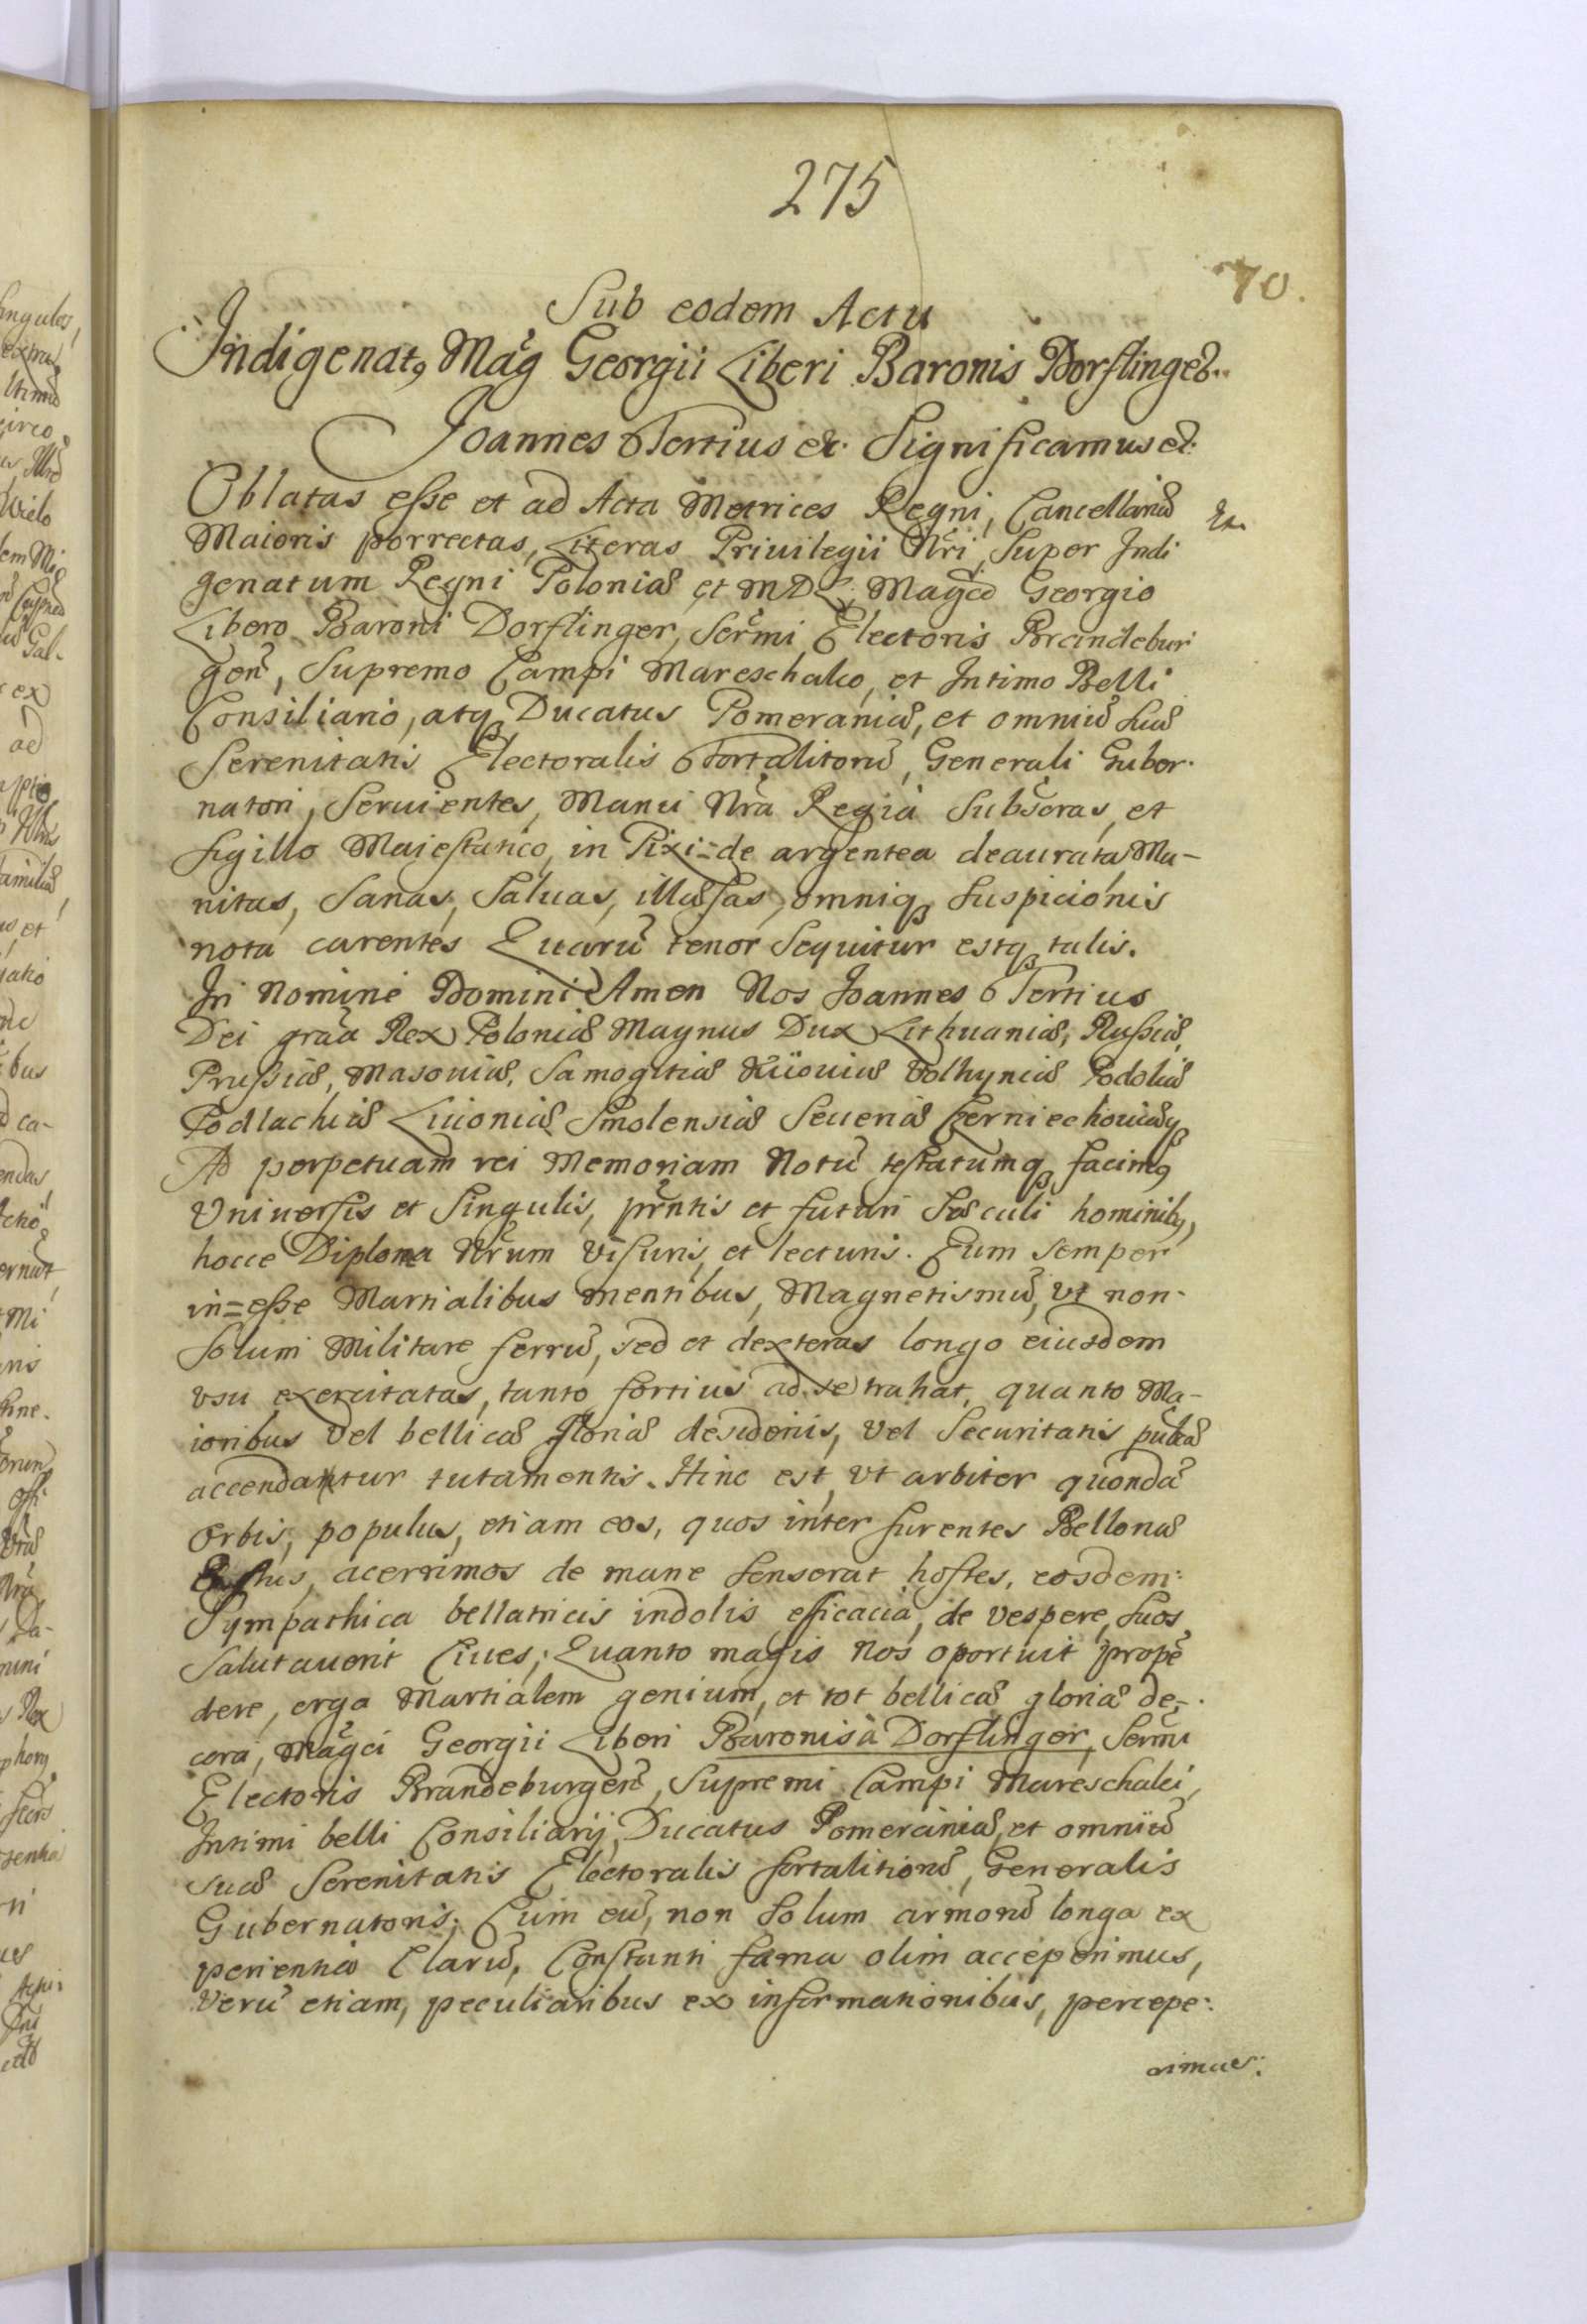 275
70.
Sub eodem Actu
Indigenat9 Mag Georgii Liberi Baronis Dorflinger
Joannes Tertius etc. Significamus etc.
Oblatas esse et ad Acta Metrices Regni, Cancellariæ
Maioris porrectas, Literas Privilegii Nri, Super Indi
genatum Regni Poloniæ et MDL, Magco Georgio
Libero Baroni Dorflinger, Sermi Electoris Brandebur
gen, Supremo Campi Mareschalco, et Intimo Belli
Consiliario, atq Ducatus Pomeraniæ, et omniũ Suæ
Serenitatis Electoralis Fortalitiorũ, Generali Guber-
natori, Seruientes, Manu Nra Regia Subscras, et
sigillo Maiestatico, in Pixi=de argentea deaurata Mu-
nitas, Sanas, Saluas, illæsas, omniq Suspicionis
nota carentes Quarũ tenor Sequitur estq talis.
In Nomine Domini Amen Nos Joannes Tertius
Dei graa Rex Poloniæ Magnus Dux Lithuaniæ, Russiæ,
Prussiæ, Masouiæ, Samogitiæ Kiiouiæ Volhyniæ Podoliæ
Podlachiæ Liuoniæ Smolensiæ Seueriæ Czerniechouiæq
Ad perpetuam rei Memoriam Notũ testatumq facimq
Vniuersis et Singulis, prntis et futuri Sæculi hominibq,
hocce Diploma Nrum visuris, et lecturis. Cum semper
in=esse Martialibus mentibus, Magnetismũ, vt non-
solum Militare ferrũ, sed et dexteras longo eiusdem
vsu exercitatas, tanto fortius ad se trahat, quanto Ma-
ioribus vel bellicæ gloriæ desiderijs, vel Securitatis publcæ
accendantur tutamentis. Hinc est, vt arbiter quondã
Orbis, populus, etiam eos, quos inter furentes Bellonæ
Æstus, acerrimos de mane senserat hostes, eosdem
Sympathica bellatricis indolis efficacia, de vespere, suos
Salutauerit Ciues; Quanto magis Nos oportuit propẽ
dere, erga Martialem genium, et tot bellicæ gloriæ de-
cora, Magci Georgii Liberi Baronis à Dorflinger, Sermi
Electoris Brandeburgen, Supremi Campi Mareschalci,
Intimi belli Consiliarij, Ducatus Pomeraniæ, et omniũ
suæ Serenitatis Electoralis fortalitiorũ, Generalis
Gubernatoris; Cum eũ, non Solum armorũ longa ex
perientia Clarũ, Constanti fama olim acceperimus,
Verũ etiam, peculiaribus ex informationibus, percepe:
rimus: